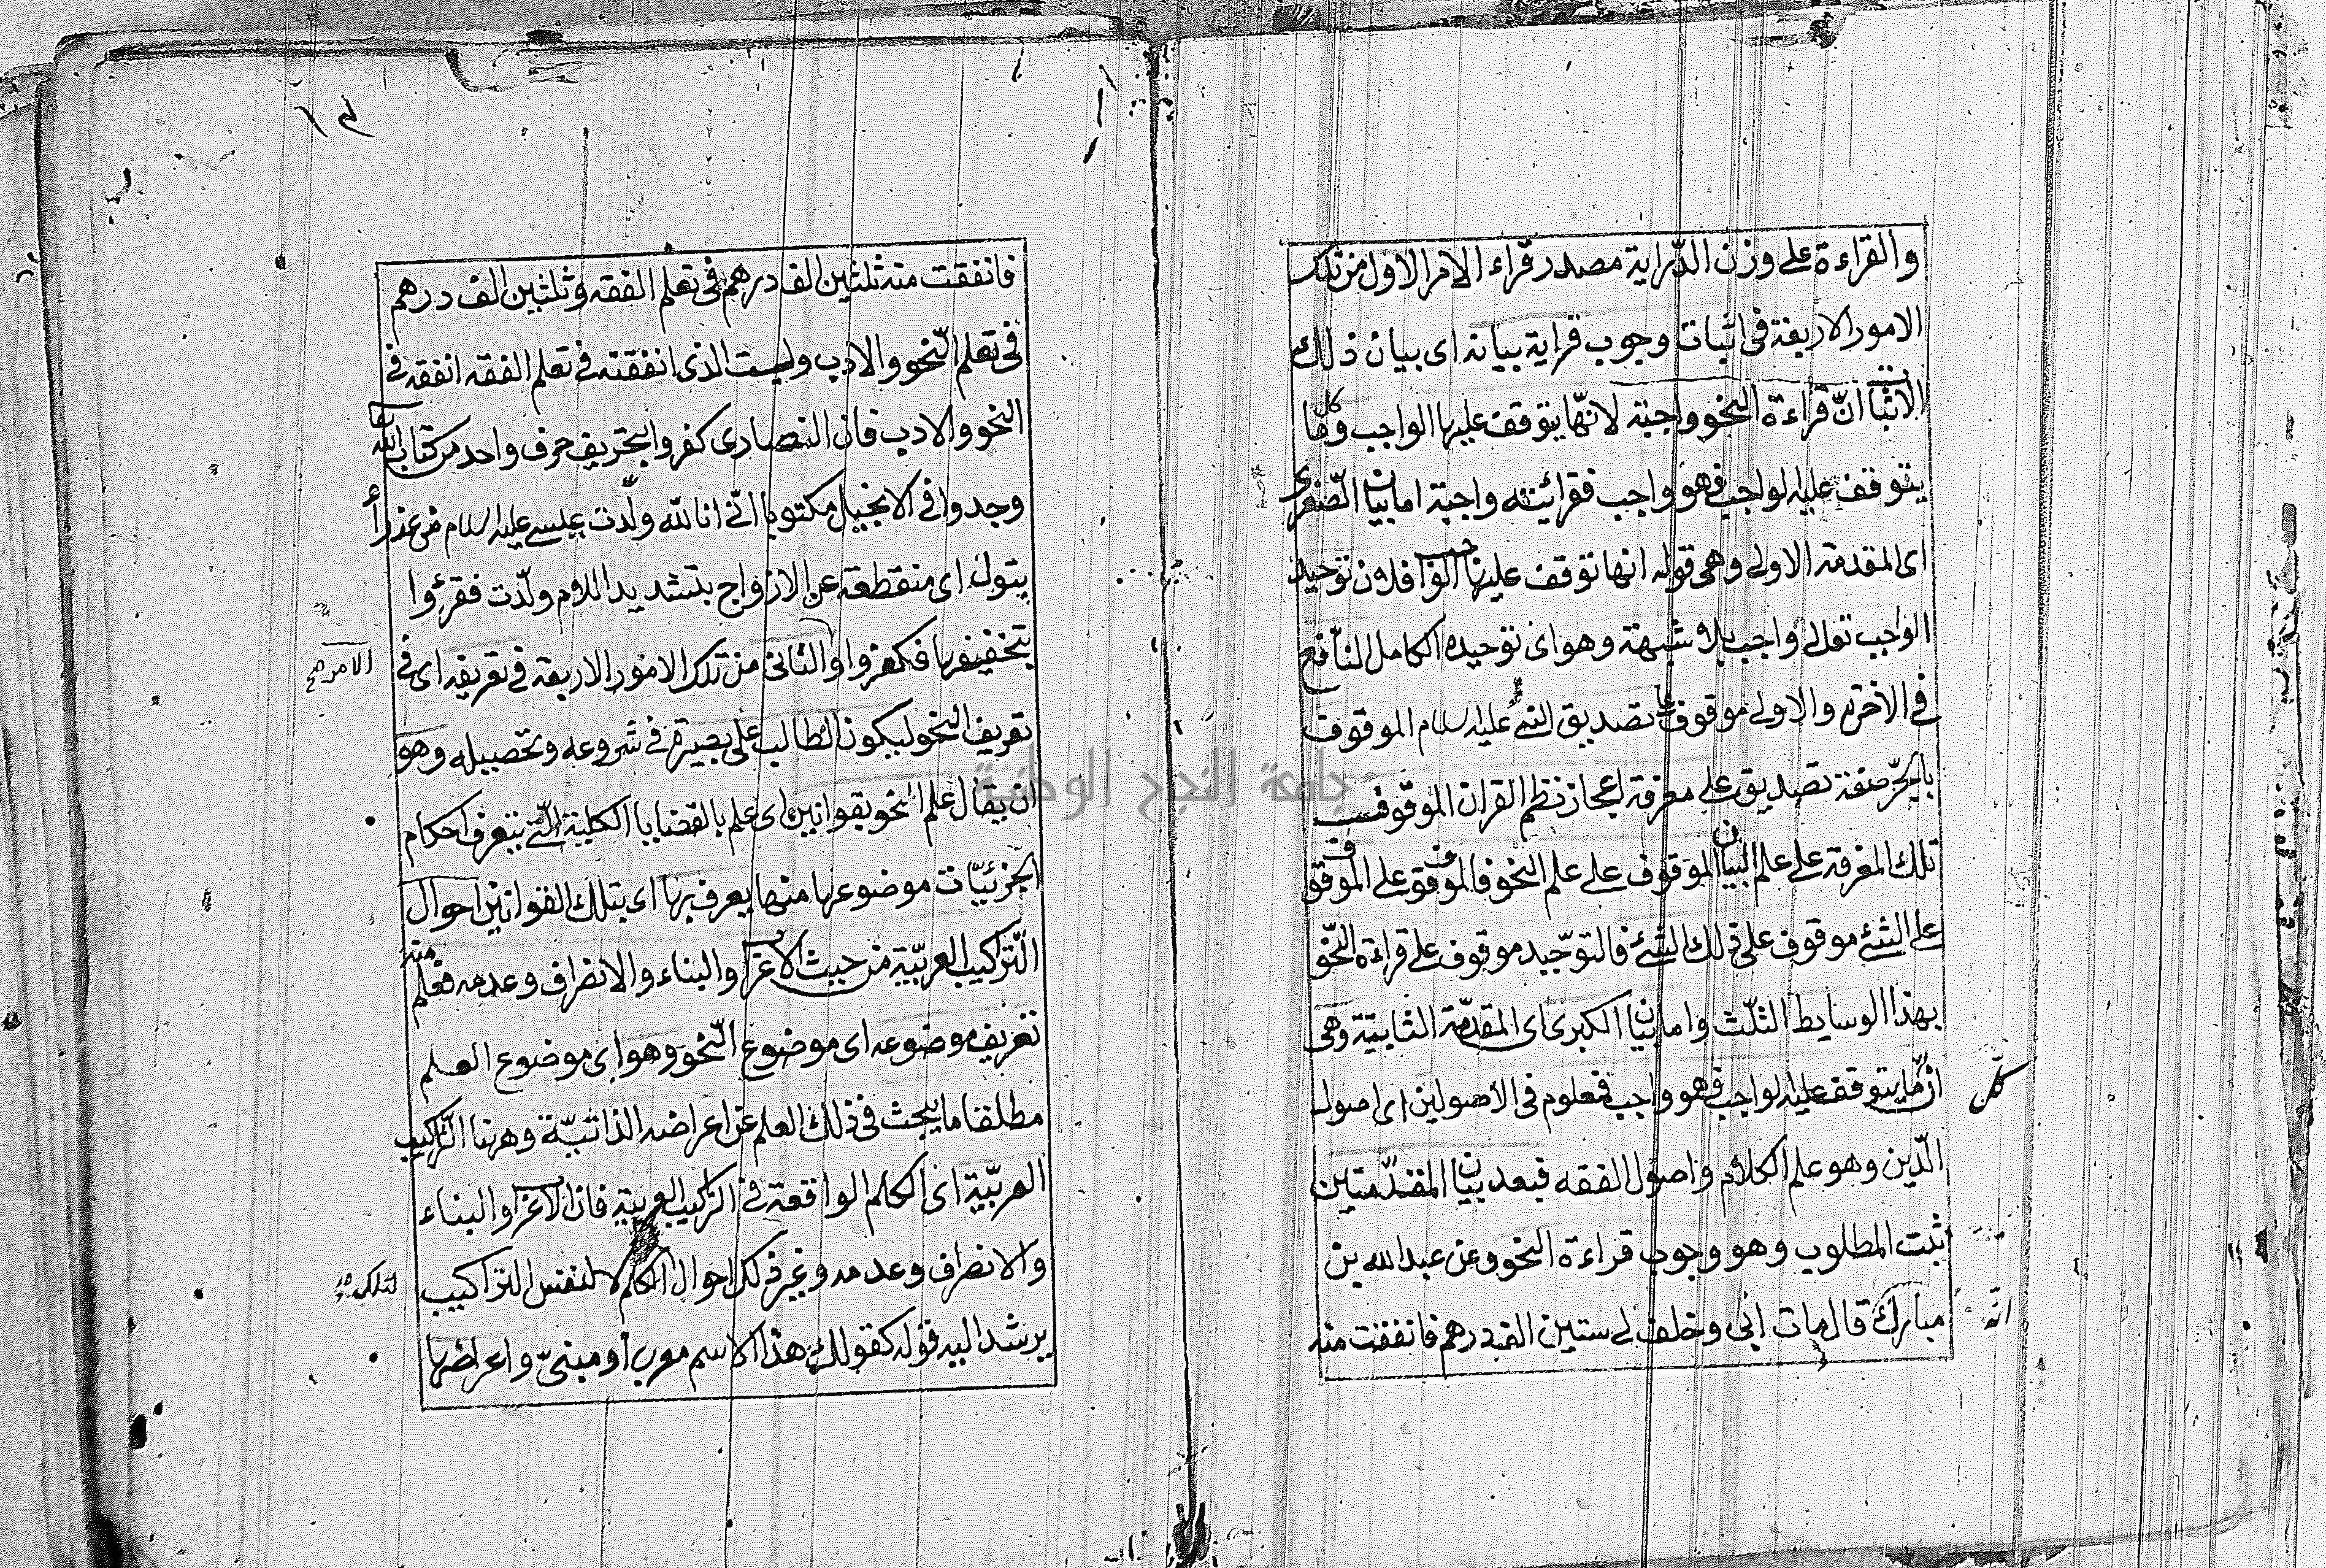 والقراءة على وزن الدّراية مصدر قراء الامر الاول من تلك
الامور الاربعة فى اثبات وجوب قراية بيانه اى بيان ذلك
الاثبات انّ قراءة النحو واجبة لانّها يتوقف عليها الواجب وكل ما
يتوقف عليه الواجب فهو واجب فقرائته واجبة اما بيان الصّغرى
اى المقدمة الاولى وهى قوله انها توقف عليها الواجب فلان توحيد
الواجب تعالى واجب بلا شبهة وهو اى توحيده الكامل النّافع
فى الآخرة والاولى موقوف على تصديق النبى عليه السلام الموقوف
بالجرّ صفة تصديق على معرفة اعجاز نظم القران الموقوف
تلك المعرفة على علم البيان الموقوف على علم النحو فالموقوف على الموقوف
على الشئ موقوف على ذلك الشئ فالتوحيد موقوف على قراءة النّحو
بهذا الوسايط الثلث واما بيان الكبرى اى المقدّمة الثانية وهى
انّ ما يتوقف عليه الواجب فهو واجب فمعلوم فى الاصولين اى اصول
كلّ
الدّين وهو علم الكلام واصول الفقه فبعد بيان المقدّمتين
ثبت المطلوب وهو وجوب قراءة النحو وعن عبد الله بن
مبارك قال مات ابى وخلف لى ستين الف درهم فانفقت منه
انّه
فانفقت منه ثلثين الف درهم فى تعلم الفقه وثلثين الف درهم
فى تعلم النّحو والادب وليست الذى انفقته فى تعلم الفقه انفقه فى
النحو والادب فان النصارى كفروا بتحريف حرف واحد من كتاب الله
وجدوا فى الانجيل مكتوبا انّى انا الله ولّدت عيسى عليه السلام من عذرأ
بتول اى منقطعة عن الازواج بتشديد اللام ولّدت فقرؤا
بتخفيفها فكفروا والثانى من تلك الامور الاربعة فى تعريفه اى فى
الامر صح
تعريف النحو ليكون الطالب على بصيرة فى شروعه وتحصيله وهو
ان يقال علم النحو بقوانين اى علم بالقضايا الكلية الّتى يتعرف احكام
الجزئيّات موضوعها منها يعرف بها اى بتلك القوانين احوال
التّراكيب العربيّة من حيث الاعراب والبناء والانصراف وعدمه فعلم منه
تعريف موضوعه اى موضوع النّحو وهو اى موضوع العلم
مطلقا ما يبحث فى ذلك العلم عن اعراضه الذاتيّة وههنا التّراكيب
العربيّة اى الكلم الواقعة فى التراكيب العربية فان الاعراب والبناء
والانصراف وعدمه وغير ذلك احوال الكلم لا لنفس التراكيب
لتلك
يرشد اليه قوله كقولك هذا الاسم معرب او مبنىّ واعراضها
جامعة النجاح الوطنية